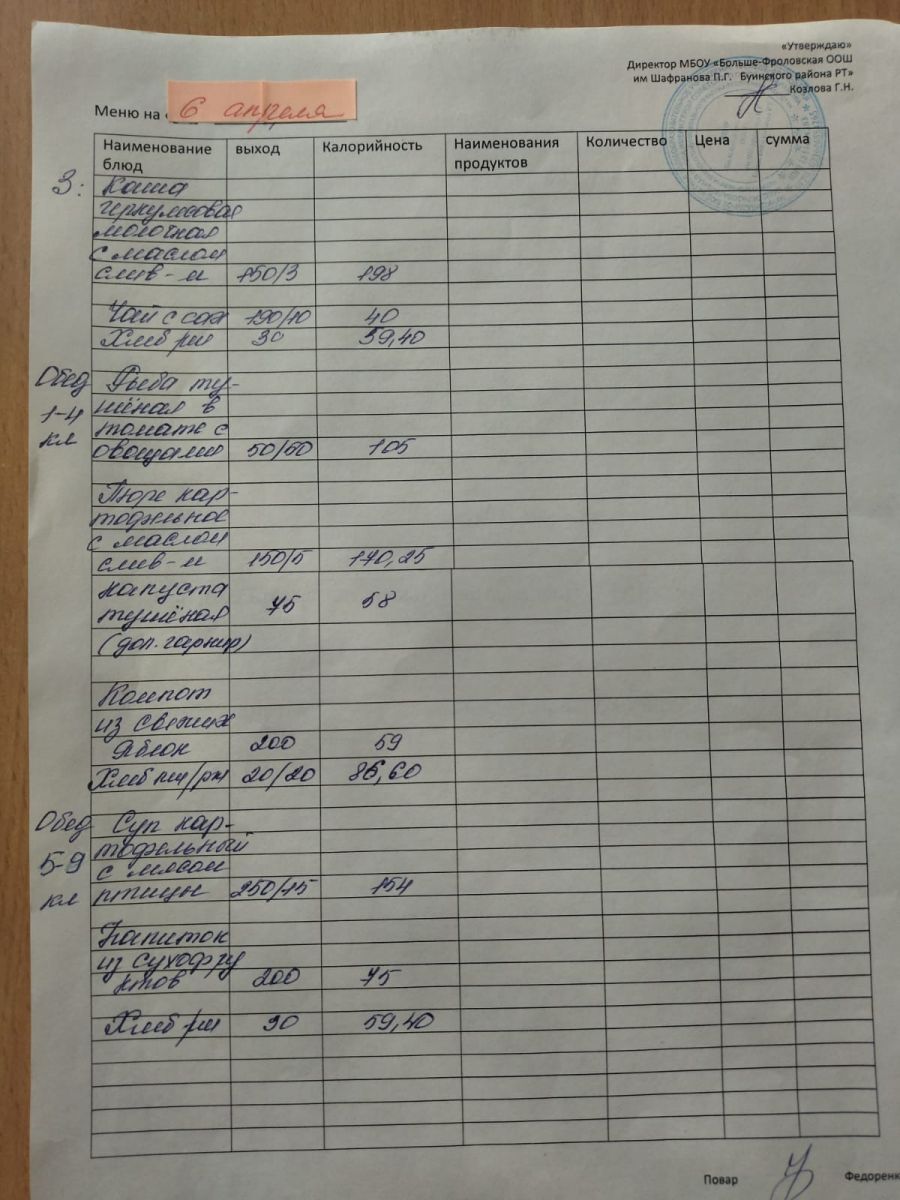 «Утверждаю»
Директор МБОУ «Больше-Фроловская ООШ
им Шафранова П.Г. Буинского района РТ»
Козлова Г.Н.
Меню на « 6 апреля
Наименование блюд выход Калорийность Наименования продуктов Количество Цена сумма
З: Каша
геркулесовая
молочная
с маслом
слив-м 150/3 198
Чай с сах 190/10 40
Хлеб рж 30 59,40
Обед Рыба ту-
1-4 шёная в
кл томате с
овощами 50/60 105
Пюре кар-
тофельное
с маслом
слив-м 150/5 170,25
капуста
тушёная 75 58
(доп. гарнир)
Компот
из свежих
яблок 200 59
Хлеб пш/рж 20/20 86,60
Обед Суп кар-
5-9 тофельный
кл с мясом
птицы 250/15 154
Напиток
из сухофру
ктов 200 75
Хлеб рж 30 59,40
Повар Федоренк